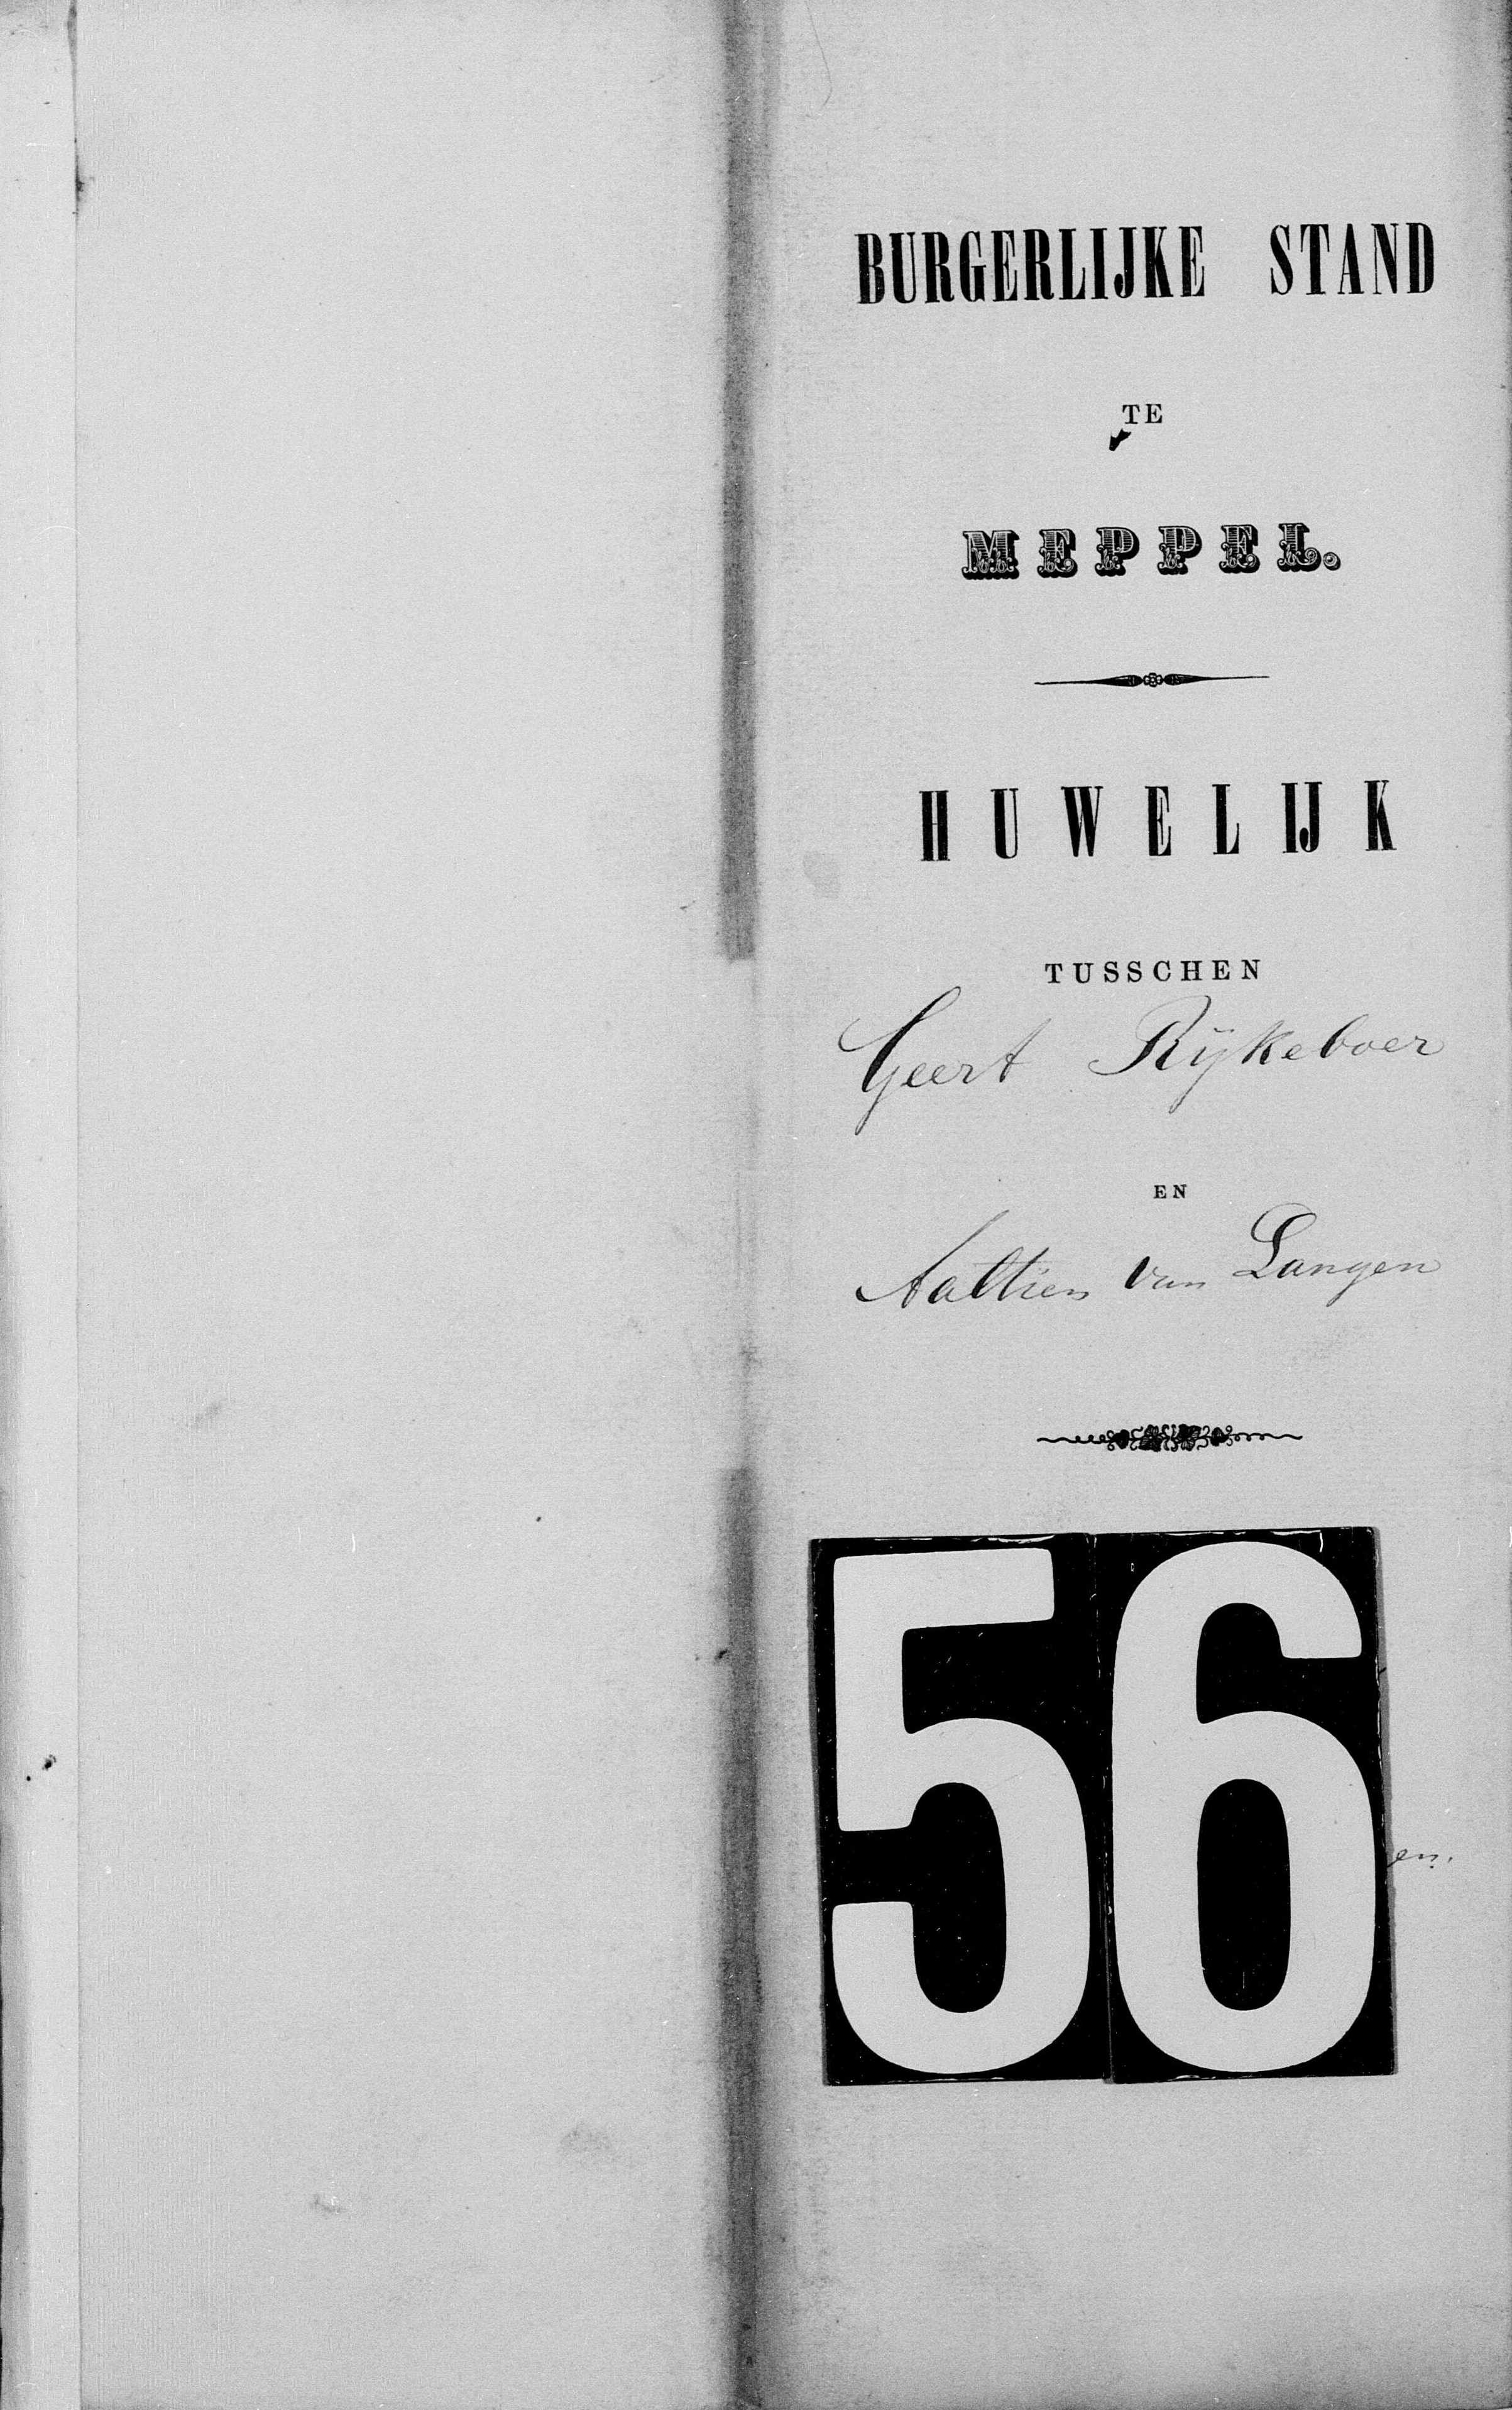 BURGERLIJKE STAND
TE
MEPPEL.
HUWELIJK
TUSSCHEN
Geert Rijkeboer
EN
Aaltien van Langen
56
en.